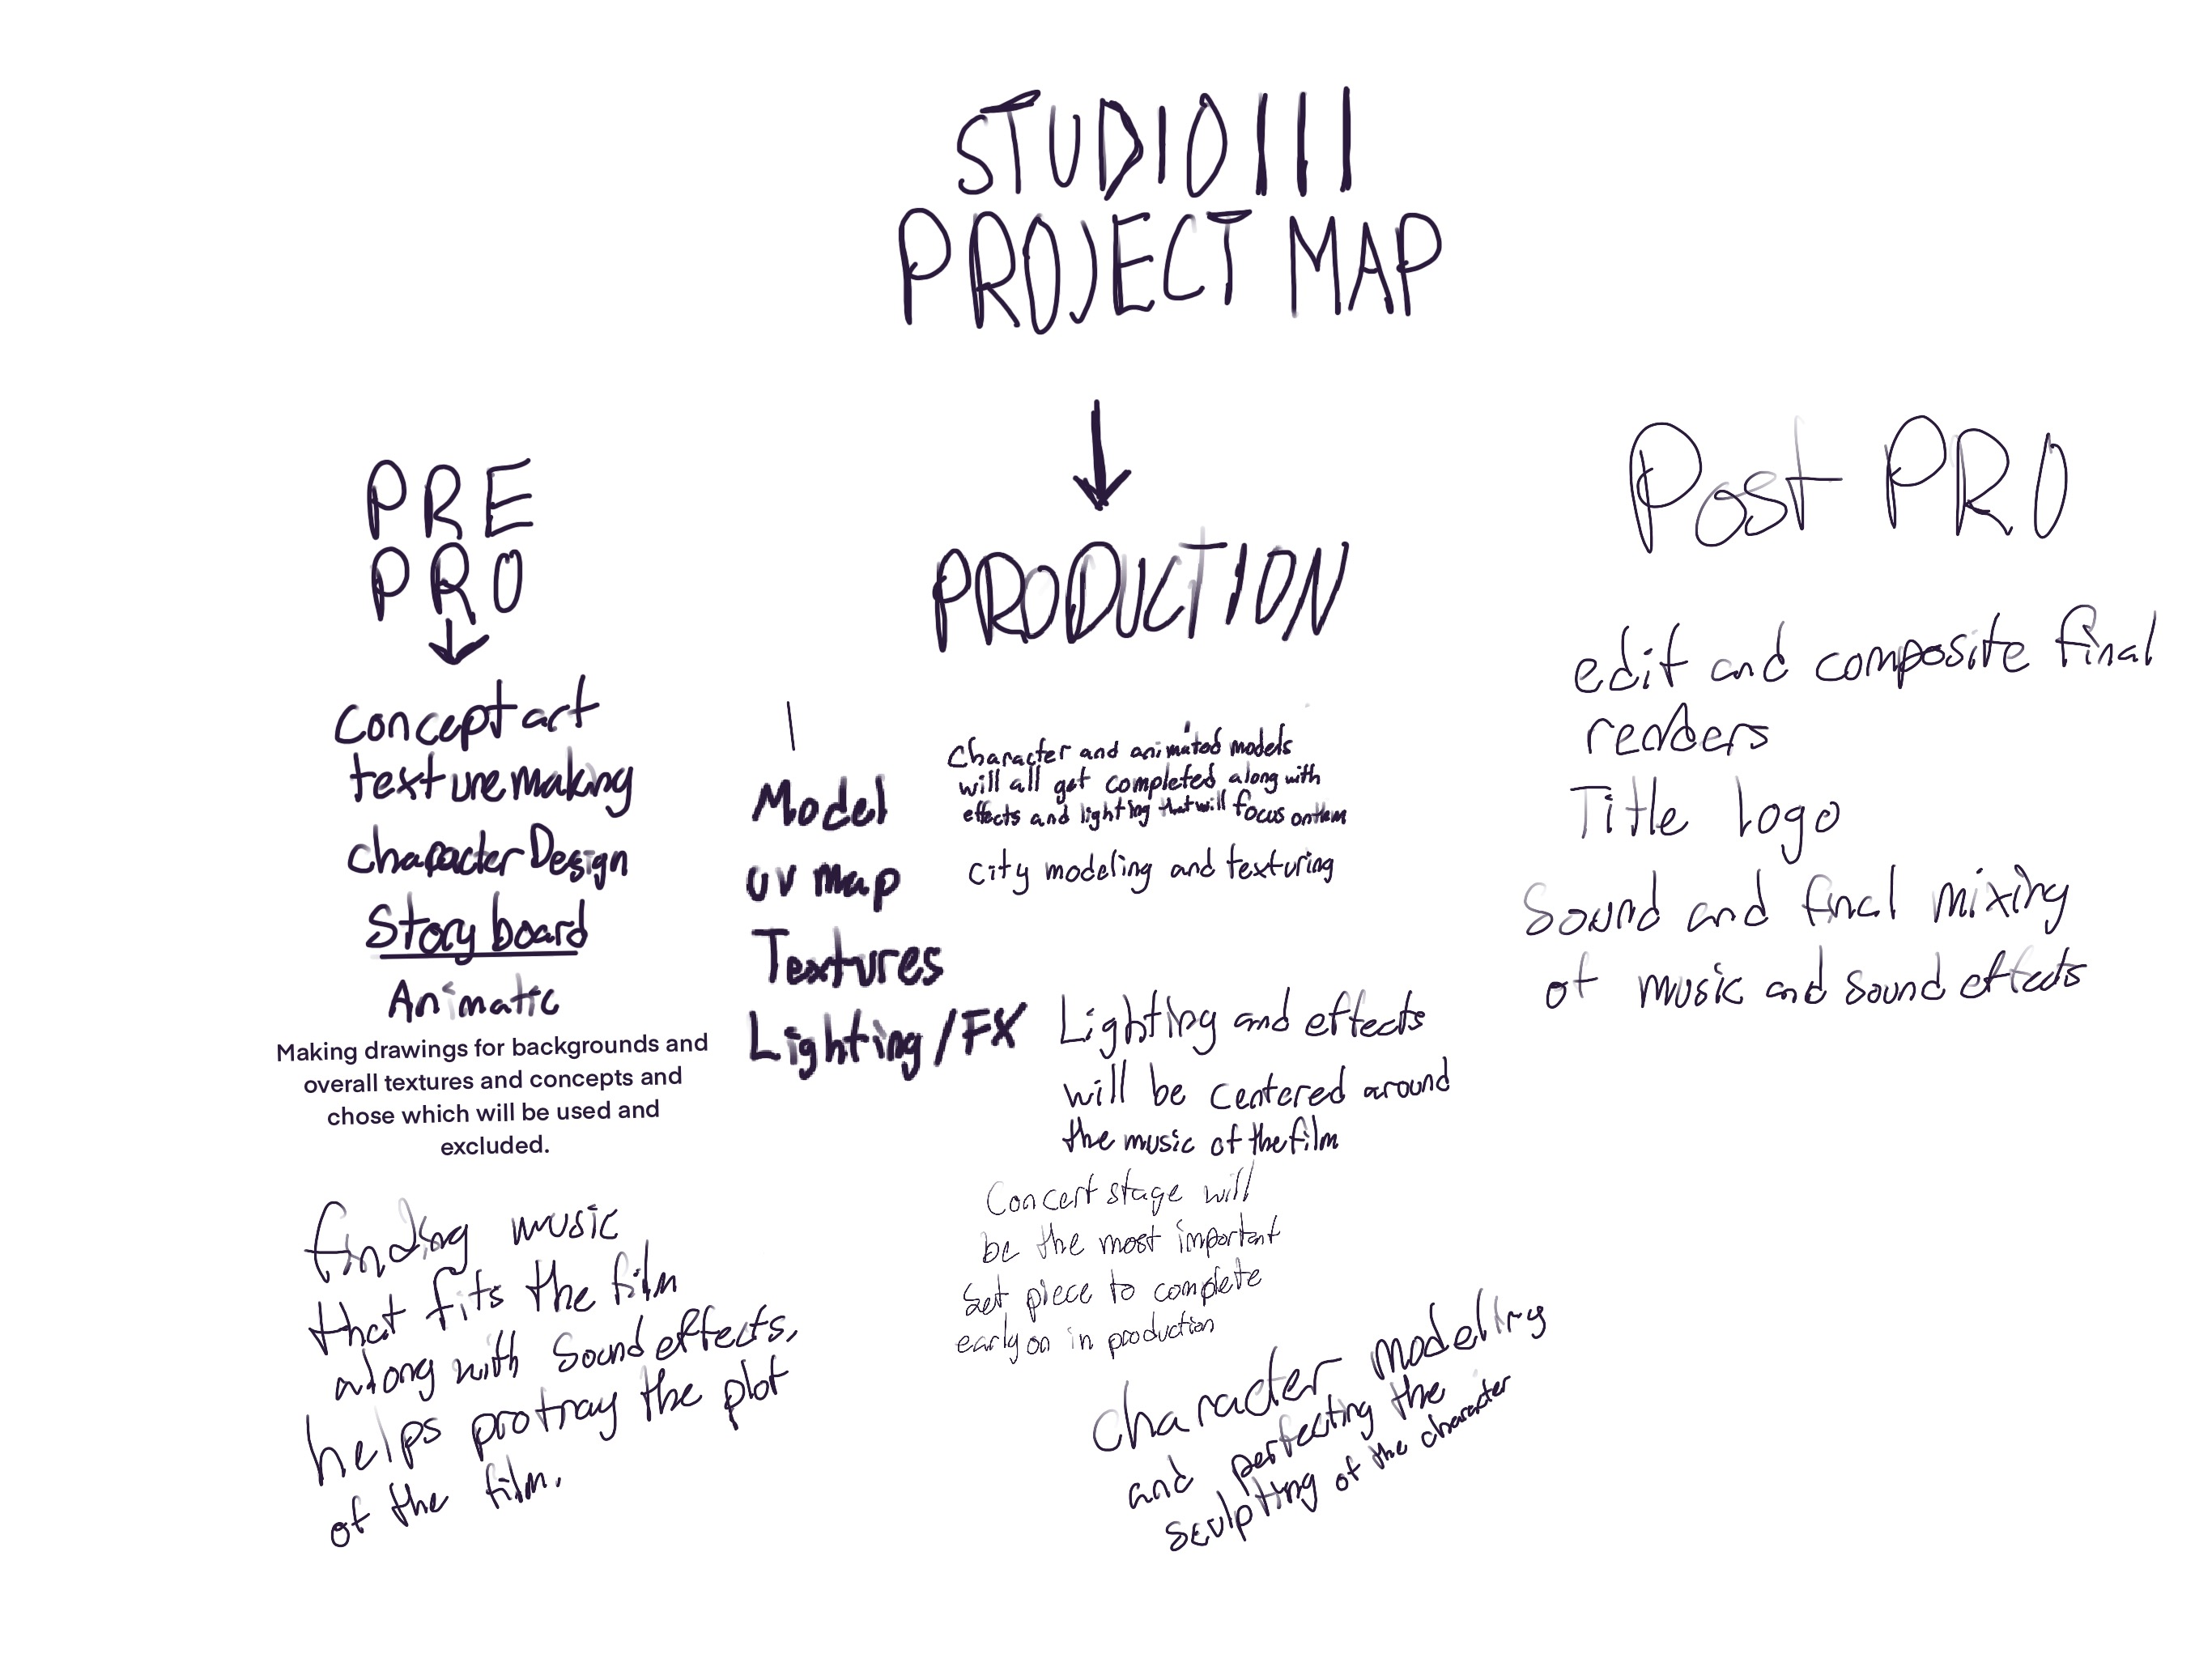 STUDIO III
PROJECT MAP
PRE
PRO
concept art
texture making
character Design
Story board
Animatic
Making drawings for backgrounds and
overall textures and concepts and
chose which will be used and
excluded.
finding music
that fits the film
along with sound effects,
helps protray the plot
of the film.
PRODUCTION
Model
UV Map
Textures
Lighting/FX
Character and animated models
will all get completed along with
effects and lighting that will focus on them
city modeling and texturing
Lighting and effects
will be centered around
the music of the film
Concert stage will
be the most important
set piece to complete
early on in production
Character modeling
and perfecting the
sculpting of the character
Post PRO
edit and composite final
renders
Title logo
Sound and final mixing
of music and sound effects